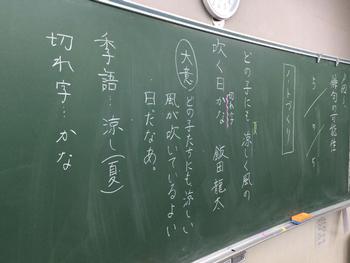 俳句の可能性
5/7/5
ノートづくり
どの子にも涼しく風の
吹く日かな 飯田龍太
切れ字
夏
大意
どの子たちにも涼しい
風が吹いているよい
日だなあ。
季語…涼し(夏)
切れ字…かな